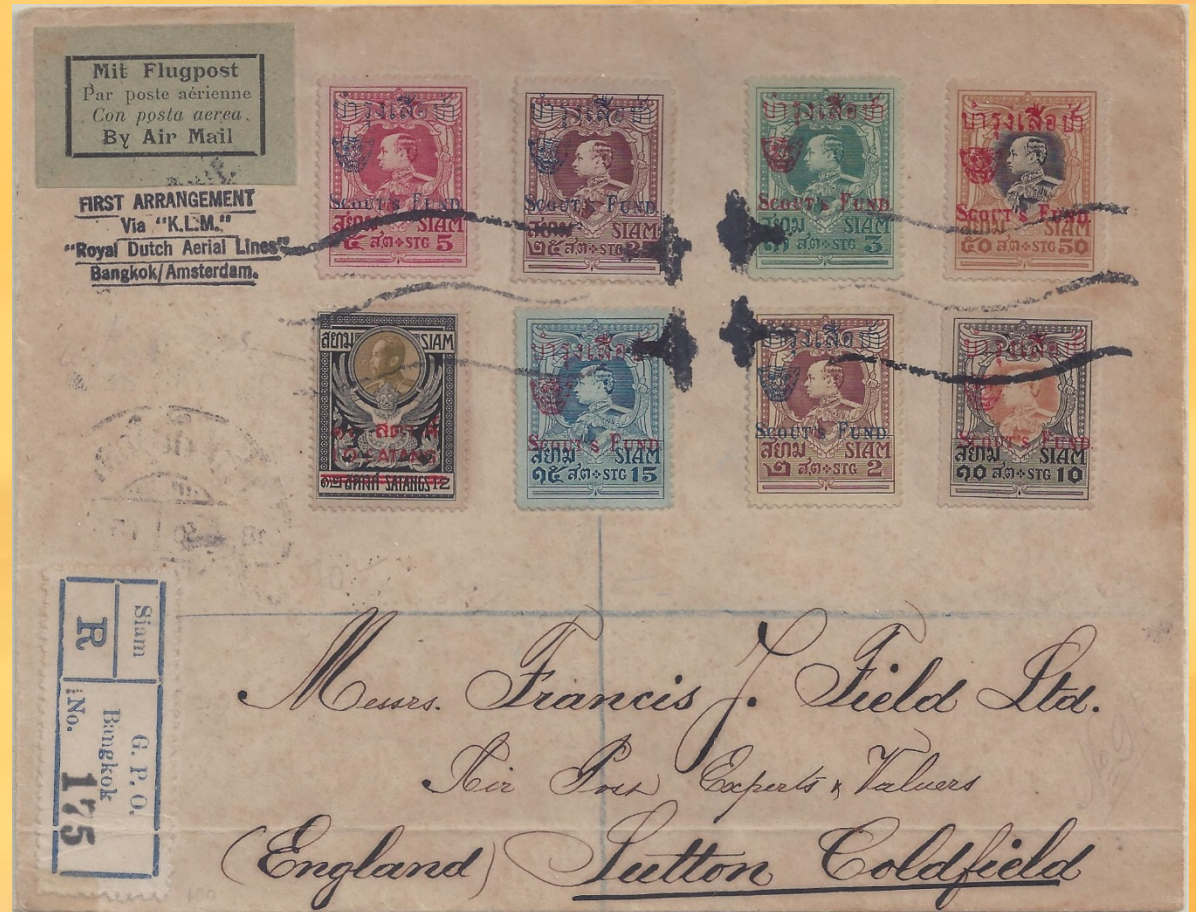 Mit Flugpost
Par poste aérienne
Con posta aerea.
By Air Mail
FIRST ARRANGEMENT
Via "K.L.M."
"Royal Dutch Aerial Lines"
Bangkok/Amsterdam.
บำรุงเสือป่า
SCOUT'S FUND
สยาม SIAM
๕ สต STG 5
บำรุงเสือป่า
SCOUT'S FUND
สยาม SIAM
๒๕ สต STG
บำรุงเสือป่า
SCOUT'S FUND
สยาม SIAM
๓ สต STG 3
บำรุงเสือป่า
SCOUT'S FUND
สยาม SIAM
๕๐ สต STG 50
สยาม SIAM
SATANG
๑๒ สตางค์ SATANGS 12
บำรุงเสือป่า
SCOUT'S FUND
สยาม SIAM
๑๕ สต STG 15
บำรุงเสือป่า
SCOUT'S FUND
สยาม SIAM
๒ สต STG 2
บำรุงเสือป่า
SCOUT'S FUND
สยาม SIAM
๑๐ สต STG 10
Siam
R
G. P. O.
Bangkok
No. 175
Messrs. Francis J. Field Ltd.
Air Post Experts & Valuers
(England) Sutton Coldfield
No 9